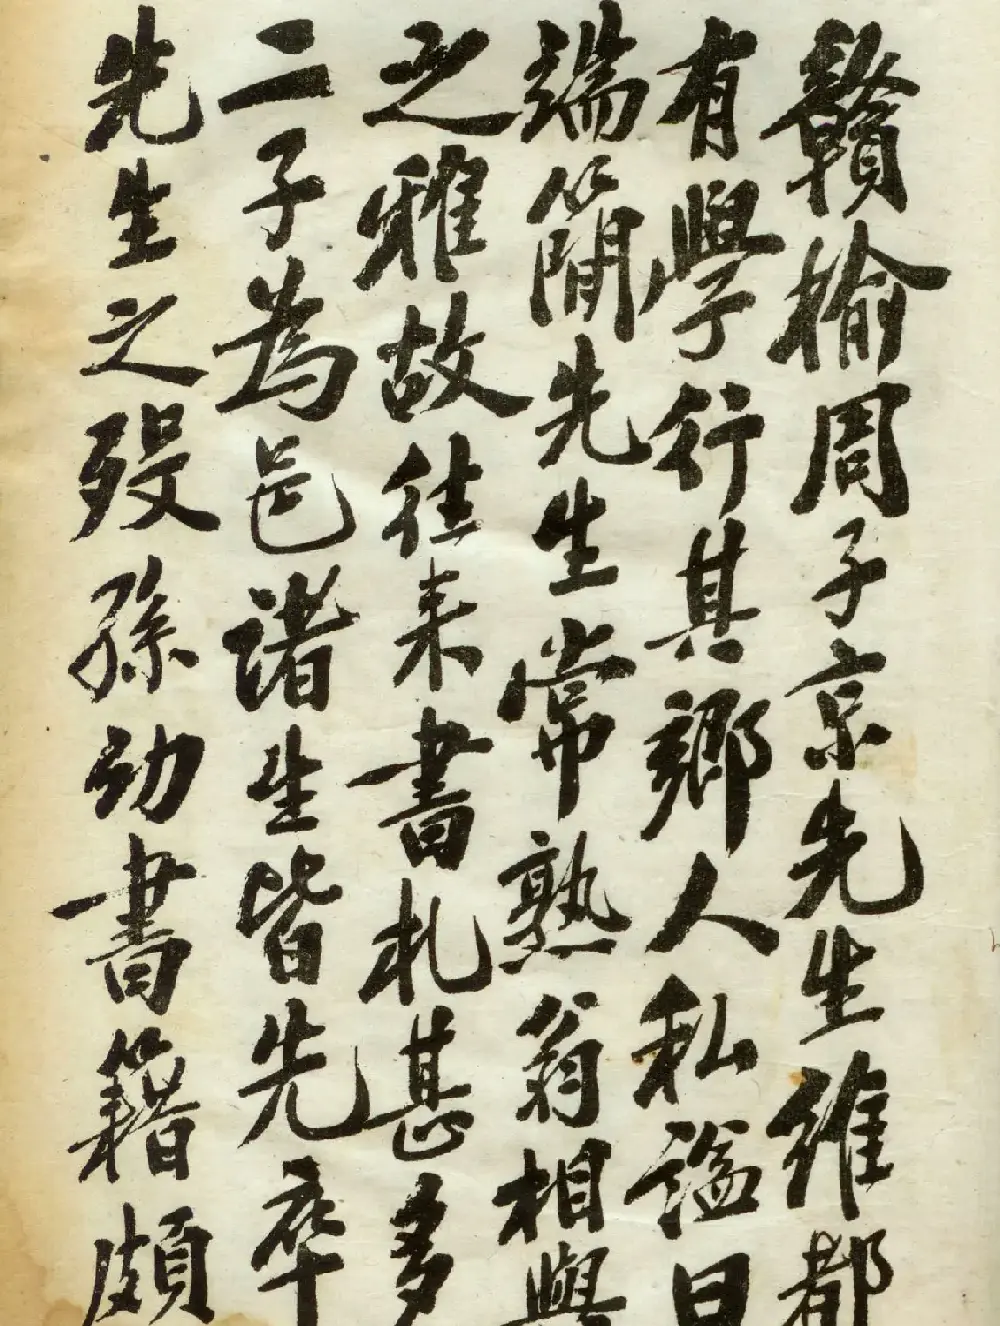 贛榆周子京先生維都
有學行其鄉人私諡曰
端簡先生常熟翁相與
之雅故往来書札甚多
二子為邑諸生皆先卒
先生之歿孫幼書籍頗